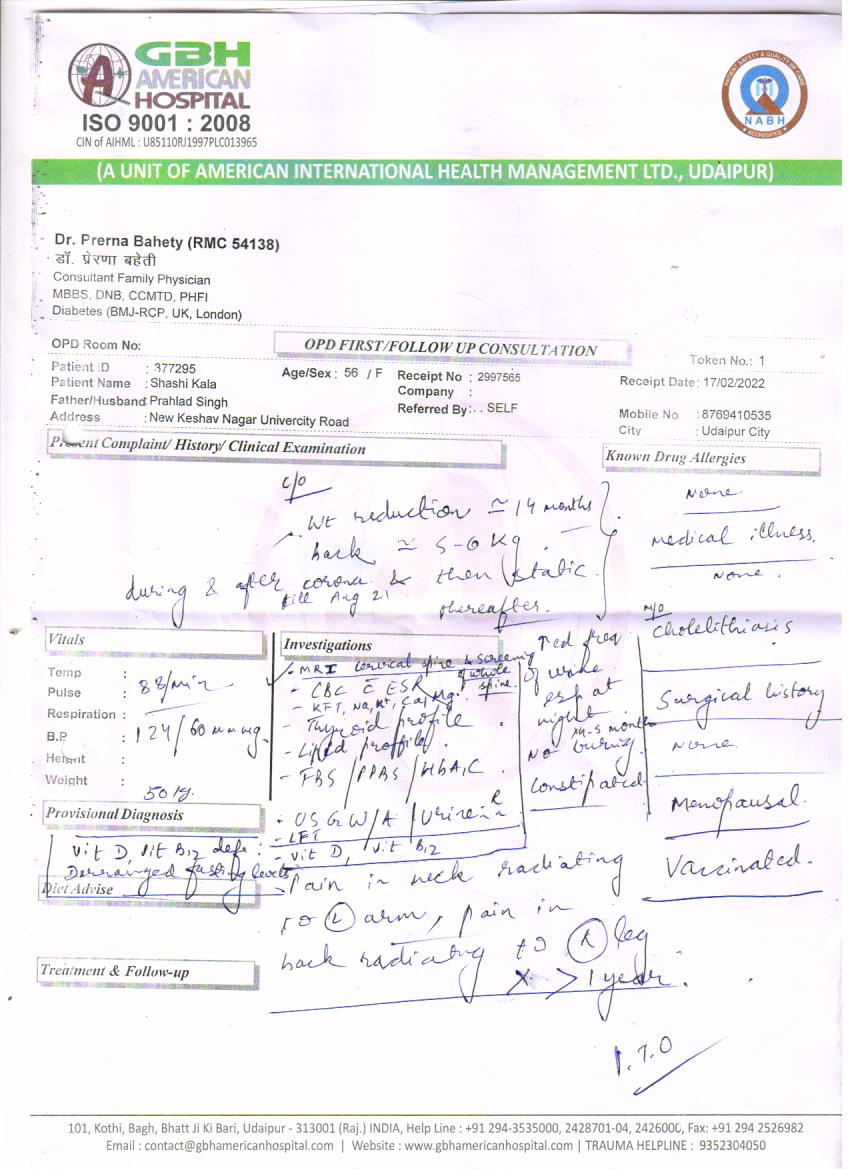 GBH
AMERICAN
HOSPITAL
ISO 9001 : 2008
CIN of AIHML : U85110RJ1997PLC013965
PATIENT SAFETY & QUALITY OF CARE
NABH
ACCREDITED
(A UNIT OF AMERICAN INTERNATIONAL HEALTH MANAGEMENT LTD., UDAIPUR)
Dr. Prerna Bahety (RMC 54138)
डॉ. प्रेरणा बहेती
Consultant Family Physician
MBBS, DNB, CCMTD, PHFI
Diabetes (BMJ-RCP, UK, London)
OPD Room No:
OPD FIRST/FOLLOW UP CONSULTATION
Token No.: 1
Patient ID : 377295
Age/Sex : 56 / F
Receipt No : 2997565
Receipt Date: 17/02/2022
Patient Name : Shashi Kala
Company :
Father/Husband Prahlad Singh
Referred By: . . SELF
Mobile No : 8769410535
Address : New Keshav Nagar Univercity Road
City : Udaipur City
Present Complaint/ History/ Clinical Examination
Known Drug Allergies
c/o
Wt reduction ≃ 14 months
back ≃ 5-6 Kg.
during & after corona & then static
till Aug 21
thereafter.
None.
Medical illness.
None.
H/O
Cholelithiasis
Surgical history
None.
Menopausal.
Vaccinated.
Vitals
Temp :
Pulse : 88/min
Respiration :
B.P. : 124/60 mmHg.
Height :
Weight : 50 kg.
Investigations
- MRI cervical spine & screening
of whole spine.
- CBC c̄ ESR
- KFT, Na, K+, Ca, Mg.
- Thyroid profile.
- Lipid profile.
- FBS / PPBS / HbA1C
- USG W/A / Urine R
- LFT
- Vit D, Vit B12
↑ed freq
of
esp at
night
x4-5 months
No burning
Constipated
Provisional Diagnosis
Vit D, Vit B12 defi.
Derranged fasting levels
Diet Advise
- Pain in neck radiating
to (L) arm, pain in
back radiating to (R) leg
x >1 year.
Treatment & Follow-up
101, Kothi, Bagh, Bhatt Ji Ki Bari, Udaipur - 313001 (Raj.) INDIA, Help Line : +91 294-3535000, 2428701-04, 2426000, Fax: +91 294 2526982
Email : contact@gbhamericanhospital.com | Website : www.gbhamericanhospital.com | TRAUMA HELPLINE : 9352304050